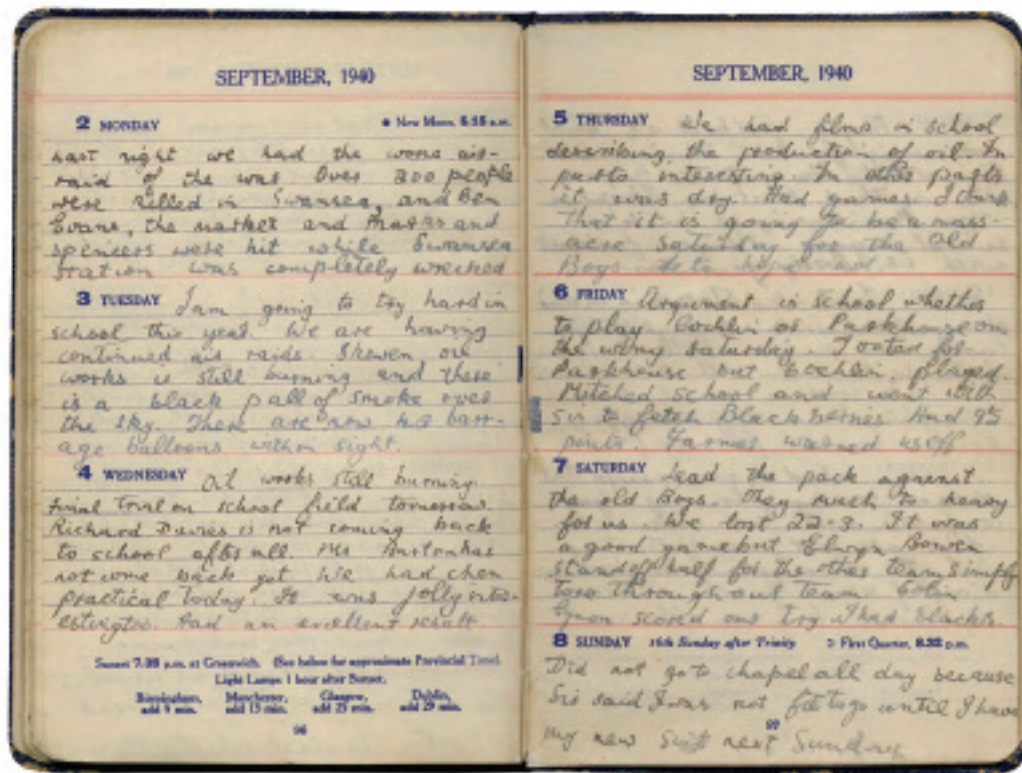 SEPTEMBER, 1940
2 MONDAY New Moon, 5.15 a.m.
Last night we had the worse air-
raid of the war Over 200 people
were killed in Swansea, and Ben
Evans, the market and Marks and
spencers were hit while Swansea
station was completely wrecked
3 TUESDAY I am going to try hard in
school this year. We are having
continued air raids. Skewen, oil
works is still burning and there
is a black pall of smoke over
the sky. There are now barr-
age balloons within sight.
4 WEDNESDAY Oil works still burning.
Final Trial on school field tomorrow.
Richard Davies is not coming back
to school after all. Mr has
not come back yet We had chem
practical today. It was jolly inter-
Had an excellent result
Sunset 7.38 p.m. at Greenwich. (See below for approximate Provincial Times)
Light Lamps 1 hour after Sunset.
Birmingham, Manchester, Glasgow, Dublin,
add 9 min. add 13 min. add 25 min. add 29 min.
96
SEPTEMBER, 1940
5 THURSDAY We had films in school
describing the production of oil. In
parts interesting. In other parts
it was dry. Had games. I think
that it is going to be a mass-
acre Saturday for the Old
Boys
6 FRIDAY Argument in school whether
to play Cochlin or Parkhouse on
the wing Saturday. I voted for
Parkhouse but Cochlin played.
Mitched school and went with
Sis to fetch Blackberries Had
pints. Farmer us off
7 SATURDAY Lead the pack against
the old Boys. They much to heavy
for us. We lost 22-3. It was
a good game but Elwyn Bowen
stand off half for the other team simply
tore through our team Colin
scored our try I had blacks.
8 SUNDAY 16th Sunday after Trinity First Quarter, 8.32 p.m.
Did not go to chapel all day because
Sis said I was not fit to go until I have
97
my new suit next Sunday